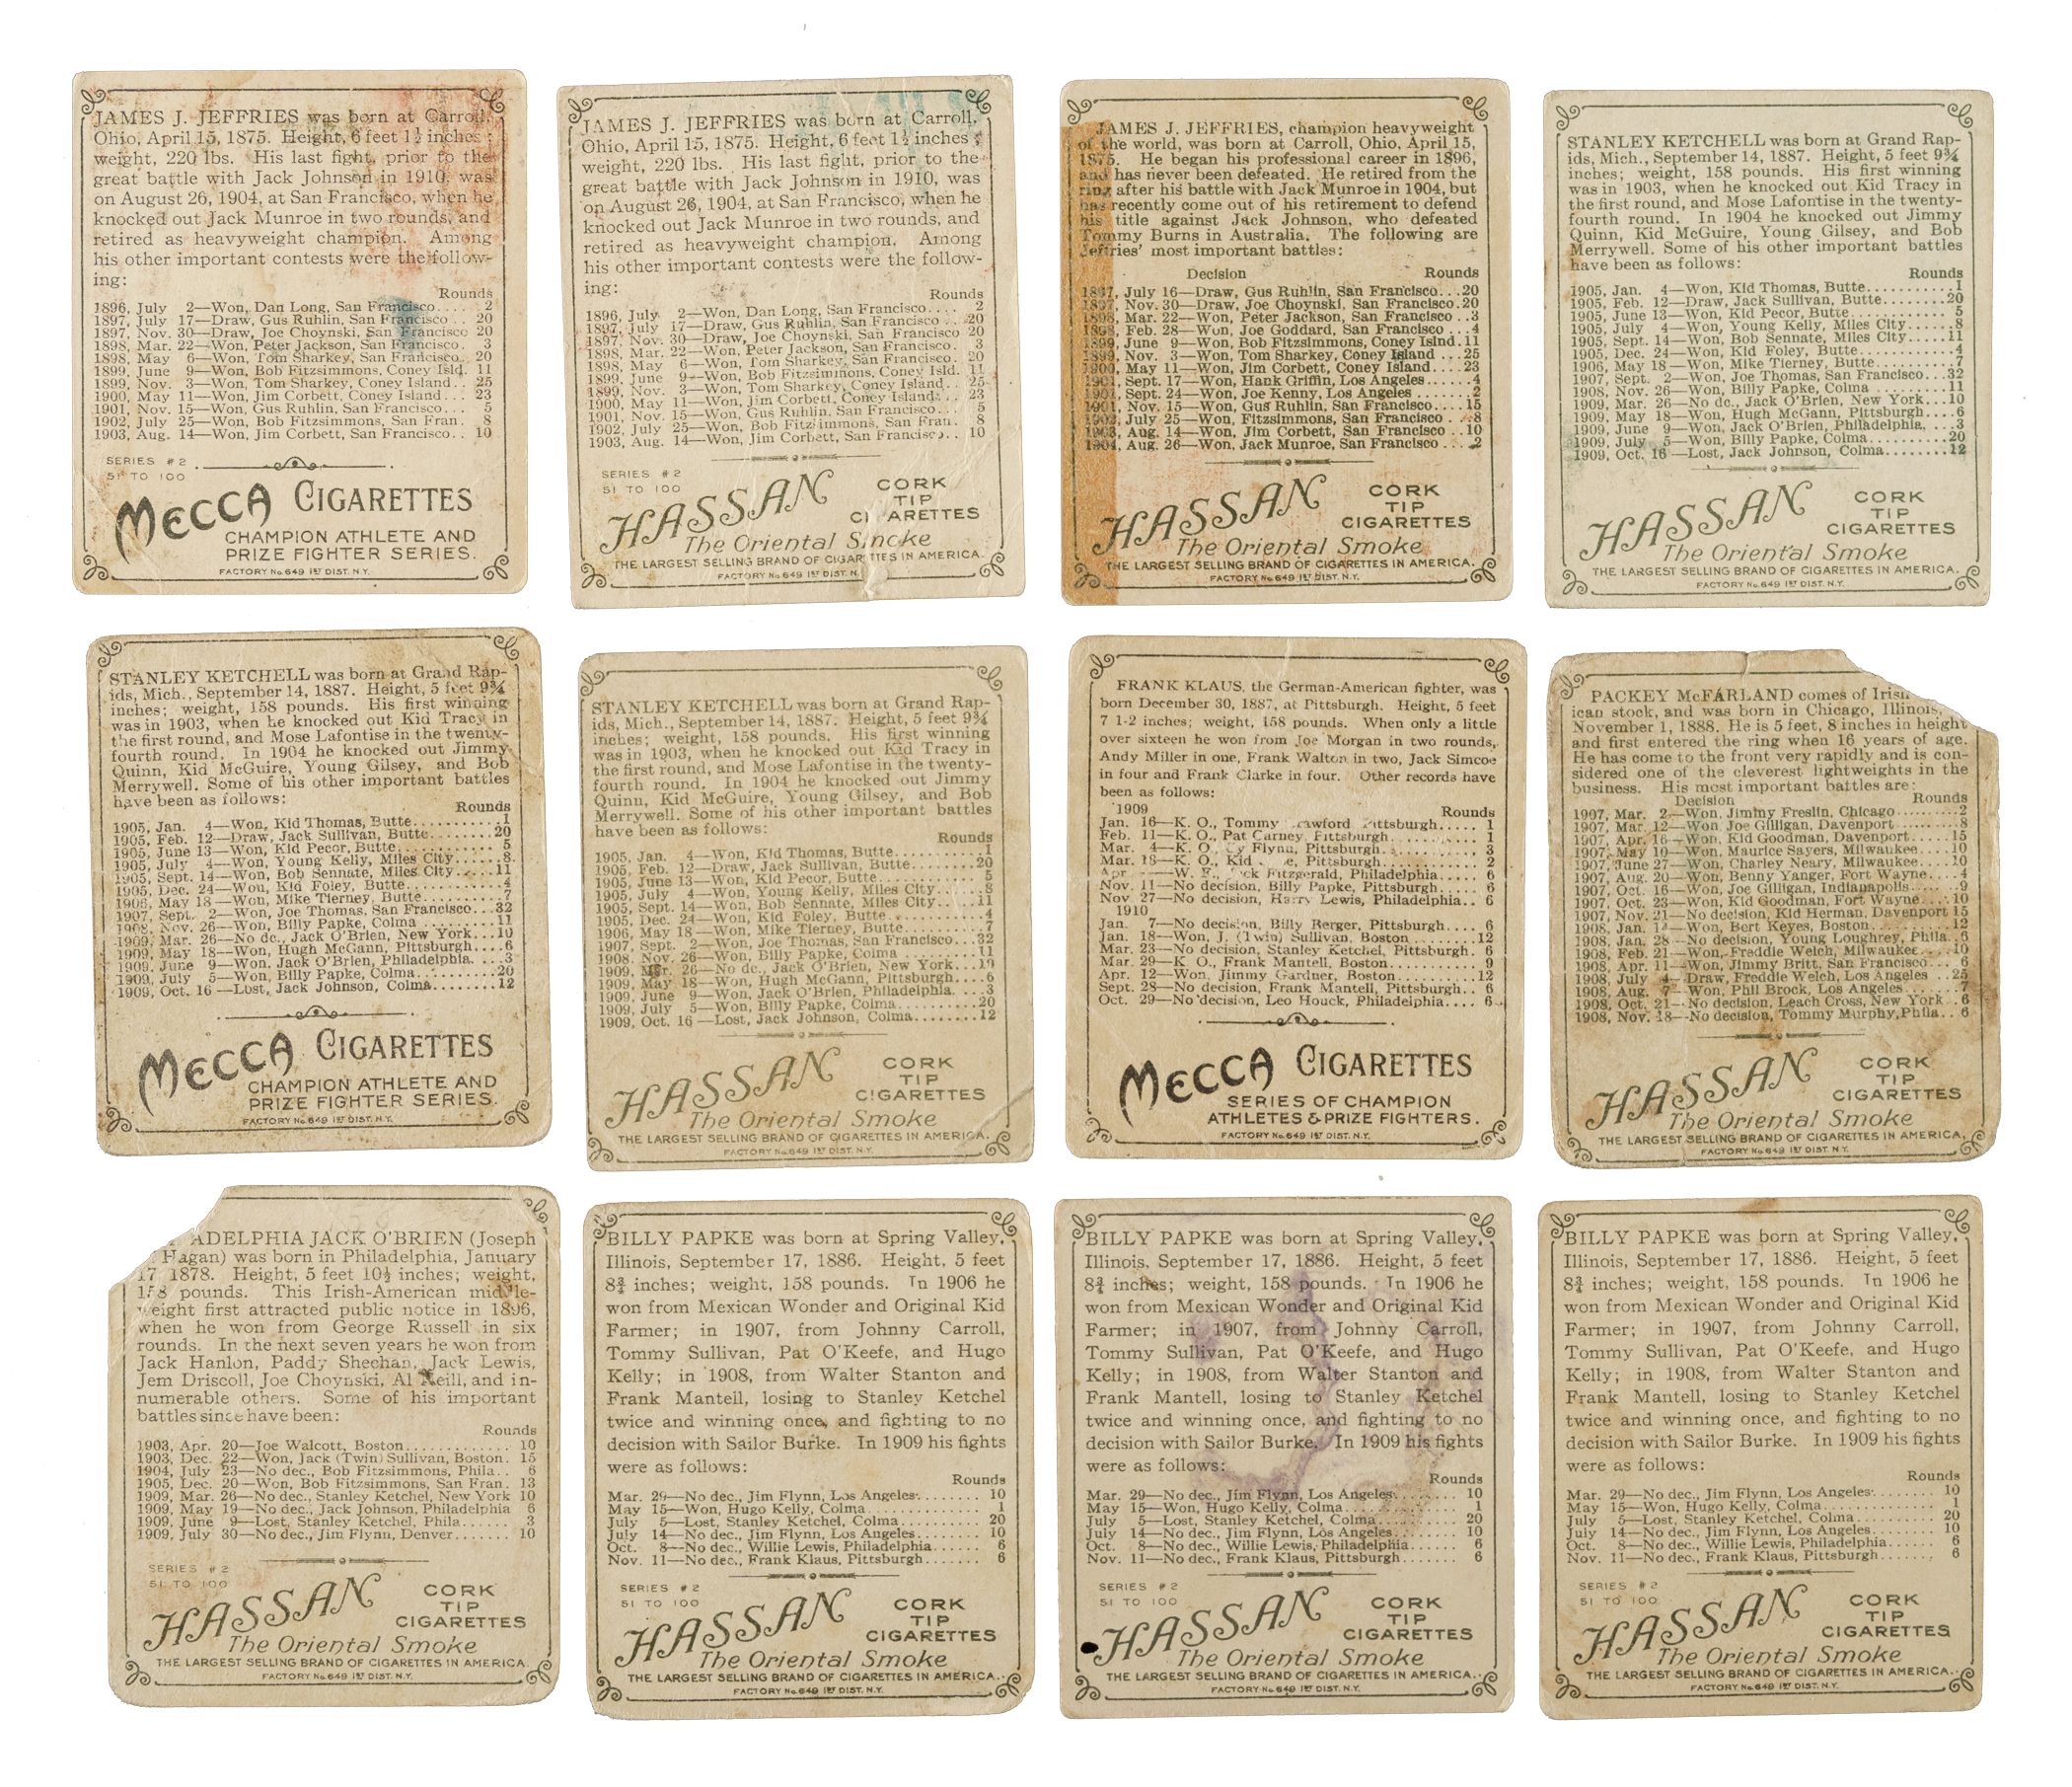 JAMES J. JEFFRIES was born at Carroll,
Ohio, April 15, 1875. Height, 6 feet 1½ inches;
weight, 220 lbs. His last fight, prior to the
great battle with Jack Johnson in 1910, was
on August 26, 1904, at San Francisco, when he
knocked out Jack Munroe in two rounds, and
retired as heavyweight champion. Among
his other important contests were the follow-
ing:
Rounds
1896, July 2—Won, Dan Long, San Francisco.... 2
1897, July 17—Draw, Gus Ruhlin, San Francisco .. 20
1897, Nov. 30—Draw, Joe Choynski, San Francisco 20
1898, Mar. 22—Won, Peter Jackson, San Francisco. 3
1898, May 6—Won, Tom Sharkey, San Francisco.. 20
1899, June 9—Won, Bob Fitzsimmons, Coney Isld. 11
1899, Nov. 3—Won, Tom Sharkey, Coney Island.. 25
1900, May 11—Won, Jim Corbett, Coney Island... 23
1901, Nov. 15—Won, Gus Ruhlin, San Francisco... 5
1902, July 25—Won, Bob Fitzsimmons, San Fran. 8
1903, Aug. 14—Won, Jim Corbett, San Francisco.. 10
SERIES #2
51 TO 100
MECCA CIGARETTES
CHAMPION ATHLETE AND
PRIZE FIGHTER SERIES.
FACTORY No. 649 1ST DIST. N.Y.
JAMES J. JEFFRIES was born at Carroll,
Ohio, April 15, 1875. Height, 6 feet 1½ inches;
weight, 220 lbs. His last fight, prior to the
great battle with Jack Johnson in 1910, was
on August 26, 1904, at San Francisco, when he
knocked out Jack Munroe in two rounds, and
retired as heavyweight champion. Among
his other important contests were the follow-
ing:
Rounds
1896, July 2—Won, Dan Long, San Francisco.... 2
1897, July 17—Draw, Gus Ruhlin, San Francisco .. 20
1897, Nov. 30—Draw, Joe Choynski, San Francisco 20
1898, Mar. 22—Won, Peter Jackson, San Francisco. 3
1898, May 6—Won, Tom Sharkey, San Francisco.. 20
1899, June 9—Won, Bob Fitzsimmons, Coney Isld. 11
1899, Nov. 3—Won, Tom Sharkey, Coney Island.. 25
1900, May 11—Won, Jim Corbett, Coney Island... 23
1901, Nov. 15—Won, Gus Ruhlin, San Francisco... 5
1902, July 25—Won, Bob Fitzsimmons, San Fran. 8
1903, Aug. 14—Won, Jim Corbett, San Francisco.. 10
SERIES #2
51 TO 100
HASSAN CORK TIP CIGARETTES
The Oriental Smoke
THE LARGEST SELLING BRAND OF CIGARETTES IN AMERICA.
FACTORY No. 649 1ST DIST. N.
JAMES J. JEFFRIES, champion heavyweight
of the world, was born at Carroll, Ohio, April 15,
1875. He began his professional career in 1896,
and has never been defeated. He retired from the
ring after his battle with Jack Munroe in 1904, but
has recently come out of his retirement to defend
his title against Jack Johnson, who defeated
Tommy Burns in Australia. The following are
Jeffries' most important battles:
Decision Rounds
1897, July 16—Draw, Gus Ruhlin, San Francisco...20
1897, Nov. 30—Draw, Joe Choynski, San Francisco.20
1898, Mar. 22—Won, Peter Jackson, San Francisco..3
1898, Feb. 28—Won, Joe Goddard, San Francisco...4
1899, June 9—Won, Bob Fitzsimmons, Coney Islnd.11
1899, Nov. 3—Won, Tom Sharkey, Coney Island ...25
1900, May 11—Won, Jim Corbett, Coney Island....23
1901, Sept. 17—Won, Hank Griffin, Los Angeles......4
1901, Sept. 24—Won, Joe Kenny, Los Angeles........2
1901, Nov. 15—Won, Gus Ruhlin, San Francisco....15
1902, July 25—Won, Fitzsimmons, San Francisco...8
1903, Aug. 14—Won, Jim Corbett, San Francisco...10
1904, Aug. 26—Won, Jack Munroe, San Francisco....2
HASSAN CORK TIP CIGARETTES
The Oriental Smoke
THE LARGEST SELLING BRAND OF CIGARETTES IN AMERICA.
FACTORY No. 649 1ST DIST. N.Y.
STANLEY KETCHELL was born at Grand Rap-
ids, Mich., September 14, 1887. Height, 5 feet 9¾
inches; weight, 158 pounds. His first winning
was in 1903, when he knocked out Kid Tracy in
the first round, and Mose Lafontise in the twenty-
fourth round. In 1904 he knocked out Jimmy
Quinn, Kid McGuire, Young Gilsey, and Bob
Merrywell. Some of his other important battles
have been as follows:
Rounds
1905, Jan. 4—Won, Kid Thomas, Butte...........1
1905, Feb. 12—Draw, Jack Sullivan, Butte........20
1905, June 13—Won, Kid Pecor, Butte..............5
1905, July 4—Won, Young Kelly, Miles City......8
1905, Sept. 14—Won, Bob Sennate, Miles City.....11
1905, Dec. 24—Won, Kid Foley, Butte.............4
1906, May 18—Won, Mike Tierney, Butte..........7
1907, Sept. 2—Won, Joe Thomas, San Francisco...32
1908, Nov. 26—Won, Billy Papke, Colma ..........11
1909, Mar. 26—No dc., Jack O'Brien, New York...10
1909, May 18—Won, Hugh McGann, Pittsburgh....6
1909, June 9—Won, Jack O'Brien, Philadelphia. ...3
1909, July 5—Won, Billy Papke, Colma...........20
1909, Oct. 16—Lost, Jack Johnson, Colma........12
HASSAN CORK TIP CIGARETTES
The Oriental Smoke
THE LARGEST SELLING BRAND OF CIGARETTES IN AMERICA.
FACTORY No. 649 1ST DIST. N.Y.
STANLEY KETCHELL was born at Grand Rap-
ids, Mich., September 14, 1887. Height, 5 feet 9¾
inches; weight, 158 pounds. His first winning
was in 1903, when he knocked out Kid Tracy in
the first round, and Mose Lafontise in the twenty-
fourth round. In 1904 he knocked out Jimmy
Quinn, Kid McGuire, Young Gilsey, and Bob
Merrywell. Some of his other important battles
have been as follows:
Rounds
1905, Jan. 4—Won, Kid Thomas, Butte...........1
1905, Feb. 12—Draw, Jack Sullivan, Butte........20
1905, June 13—Won, Kid Pecor, Butte..............5
1905, July 4—Won, Young Kelly, Miles City......8
1905, Sept. 14—Won, Bob Sennate, Miles City.....11
1905, Dec. 24—Won, Kid Foley, Butte.............4
1906, May 18—Won, Mike Tierney, Butte..........7
1907, Sept. 2—Won, Joe Thomas, San Francisco...32
1908, Nov. 26—Won, Billy Papke, Colma ..........11
1909, Mar. 26—No dc., Jack O'Brien, New York...10
1909, May 18—Won, Hugh McGann, Pittsburgh....6
1909, June 9—Won, Jack O'Brien, Philadelphia. ...3
1909, July 5—Won, Billy Papke, Colma...........20
1909, Oct. 16—Lost, Jack Johnson, Colma........12
MECCA CIGARETTES
CHAMPION ATHLETE AND
PRIZE FIGHTER SERIES.
FACTORY No. 649 1ST DIST. N.Y.
STANLEY KETCHELL was born at Grand Rap-
ids, Mich., September 14, 1887. Height, 5 feet 9¾
inches; weight, 158 pounds. His first winning
was in 1903, when he knocked out Kid Tracy in
the first round, and Mose Lafontise in the twenty-
fourth round. In 1904 he knocked out Jimmy
Quinn, Kid McGuire, Young Gilsey, and Bob
Merrywell. Some of his other important battles
have been as follows:
Rounds
1905, Jan. 4—Won, Kid Thomas, Butte...........1
1905, Feb. 12—Draw, Jack Sullivan, Butte........20
1905, June 13—Won, Kid Pecor, Butte..............5
1905, July 4—Won, Young Kelly, Miles City......8
1905, Sept. 14—Won, Bob Sennate, Miles City.....11
1905, Dec. 24—Won, Kid Foley, Butte.............4
1906, May 18—Won, Mike Tierney, Butte..........7
1907, Sept. 2—Won, Joe Thomas, San Francisco...32
1908, Nov. 26—Won, Billy Papke, Colma ..........11
1909, Mar. 26—No dc., Jack O'Brien, New York...10
1909, May 18—Won, Hugh McGann, Pittsburgh....6
1909, June 9—Won, Jack O'Brien, Philadelphia. ...3
1909, July 5—Won, Billy Papke, Colma...........20
1909, Oct. 16—Lost, Jack Johnson, Colma........12
HASSAN CORK TIP CIGARETTES
The Oriental Smoke
THE LARGEST SELLING BRAND OF CIGARETTES IN AMERICA.
FACTORY No. 649 1ST DIST. N.Y.
FRANK KLAUS, the German-American fighter, was
born December 30, 1887, at Pittsburgh. Height, 5 feet
7 1-2 inches; weight, 158 pounds. When only a little
over sixteen he won from Joe Morgan in two rounds,
Andy Miller in one, Frank Walton in two, Jack Simcoe
in four and Frank Clarke in four. Other records have
been as follows:
1909 Rounds
Jan. 16—K. O., Tommy Pittsburgh..... 1
Feb. 11—K. O., Pat Carney, Pittsburgh.......... 3
Mar. 4—K. O., Flynn, Pittsburgh.......... 3
Mar. 18—K. O., Kid Pittsburgh........... 2
Apr Fitzgerald, Philadelphia...... 6
Nov. 11—No decision, Billy Papke, Pittsburgh.... 6
Nov. 27—No decision, Harry Lewis, Philadelphia.. 6
1910
Jan. 7—No decision, Billy Berger, Pittsburgh.... 6
Jan. 18—Won, J. (Twin) Sullivan, Boston.........12
Mar. 23—No decision, Stanley Ketchel, Pittsburgh. 6
Mar. 29—K. O., Frank Mantell, Boston........... 9
Apr. 12—Won, Jimmy Gardner, Boston...........12
Sept. 28—No decision, Frank Mantell, Pittsburgh.. 6
Oct. 29—No decision, Leo Houck, Philadelphia.... 6
MECCA CIGARETTES
SERIES OF CHAMPION
ATHLETES & PRIZE FIGHTERS.
FACTORY No. 649 1ST DIST. N.Y.
PACKEY McFARLAND comes of Irish
ican stock, and was born in Chicago, Illinois,
November 1, 1888. He is 5 feet, 8 inches in height
and first entered the ring when 16 years of age.
He has come to the front very rapidly and is con-
sidered one of the cleverest lightweights in the
business. His most important battles are:
Decision Rounds
1907, Mar. 2—Won, Jimmy Freslin, Chicago.......2
1907, Mar. 12—Won Joe Gilligan, Davenport.......8
1907, Apr. 16—Won, Kid Goodman, Davenport....15
1907, May 10—Won, Maurice Sayers, Milwaukee....10
1907, June 27—Won, Charley Neary, Milwaukee....10
1907, Aug. 20—Won, Benny Yanger, Fort Wayne....4
1907, Oct. 16—Won, Joe Gilligan, Indianapolis......9
1907, Oct. 23—Won, Kid Goodman, Fort Wayne....10
1907, Nov. 21—No decision, Kid Herman, Davenport 15
1908, Jan. Won, Bert Keyes, Boston...........12
1908, Jan. 28—No decision, Young Loughrey, Phila..6
1908, Feb. 21—Won, Freddie Welch, Milwaukee...10
1908, Apr. 11—Won, Jimmy Britt, San Francisco...6
1908, July 4—Draw, Freddie Welch, Los Angeles ..25
1908, Aug. 7—Won, Phil Brock, Los Angeles........7
1908, Oct. 21—No decision, Leach Cross, New York..6
1908, Nov. 18—No decision, Tommy Murphy, Phila..6
HASSAN CORK TIP CIGARETTES
The Oriental Smoke
THE LARGEST SELLING BRAND OF CIGARETTES IN AMERICA.
FACTORY No. 649 1ST DIST. N.Y.
ADELPHIA JACK O'BRIEN (Joseph
Hagan) was born in Philadelphia, January
17 1878. Height, 5 feet 10½ inches; weight,
158 pounds. This Irish-American middle-
weight first attracted public notice in 1896,
when he won from George Russell in six
rounds. In the next seven years he won from
Jack Hanlon, Paddy Sheehan, Jack Lewis,
Jem Driscoll, Joe Choynski, Al Neill, and in-
numerable others. Some of his important
battles since have been:
Rounds
1903, Apr. 20—Joe Walcott, Boston............. 10
1903, Dec. 22—Won, Jack (Twin) Sullivan, Boston. 15
1904, July 23—No dec., Bob Fitzsimmons, Phila.. 6
1905, Dec. 20—Won, Bob Fitzsimmons, San Fran. 13
1909, Mar. 26—No dec., Stanley Ketchel, New York 10
1909, May 19—No dec., Jack Johnson, Philadelphia 6
1909, June 9—Lost, Stanley Ketchel, Phila...... 3
1909, July 30—No dec., Jim Flynn, Denver....... 10
SERIES #2
51 TO 100
HASSAN CORK TIP CIGARETTES
The Oriental Smoke
THE LARGEST SELLING BRAND OF CIGARETTES IN AMERICA.
FACTORY No. 649 1ST DIST. N.Y.
BILLY PAPKE was born at Spring Valley,
Illinois, September 17, 1886. Height, 5 feet
8¾ inches; weight, 158 pounds. In 1906 he
won from Mexican Wonder and Original Kid
Farmer; in 1907, from Johnny Carroll,
Tommy Sullivan, Pat O'Keefe, and Hugo
Kelly; in 1908, from Walter Stanton and
Frank Mantell, losing to Stanley Ketchel
twice and winning once, and fighting to no
decision with Sailor Burke. In 1909 his fights
were as follows:
Rounds
Mar. 29—No dec., Jim Flynn, Los Angeles......... 10
May 15—Won, Hugo Kelly, Colma............... 1
July 5—Lost, Stanley Ketchel, Colma........... 20
July 14—No dec., Jim Flynn, Los Angeles......... 10
Oct. 8—No dec., Willie Lewis, Philadelphia...... 6
Nov. 11—No dec., Frank Klaus, Pittsburgh....... 6
SERIES #2
51 TO 100
HASSAN CORK TIP CIGARETTES
The Oriental Smoke
THE LARGEST SELLING BRAND OF CIGARETTES IN AMERICA.
FACTORY No. 649 1ST DIST. N.Y.
BILLY PAPKE was born at Spring Valley,
Illinois, September 17, 1886. Height, 5 feet
8¾ inches; weight, 158 pounds. In 1906 he
won from Mexican Wonder and Original Kid
Farmer; in 1907, from Johnny Carroll,
Tommy Sullivan, Pat O'Keefe, and Hugo
Kelly; in 1908, from Walter Stanton and
Frank Mantell, losing to Stanley Ketchel
twice and winning once, and fighting to no
decision with Sailor Burke. In 1909 his fights
were as follows:
Rounds
Mar. 29—No dec., Jim Flynn, Los Angeles......... 10
May 15—Won, Hugo Kelly, Colma............... 1
July 5—Lost, Stanley Ketchel, Colma........... 20
July 14—No dec., Jim Flynn, Los Angeles......... 10
Oct. 8—No dec., Willie Lewis, Philadelphia...... 6
Nov. 11—No dec., Frank Klaus, Pittsburgh....... 6
SERIES #2
51 TO 100
HASSAN CORK TIP CIGARETTES
The Oriental Smoke
THE LARGEST SELLING BRAND OF CIGARETTES IN AMERICA.
FACTORY No. 649 1ST DIST. N.Y.
BILLY PAPKE was born at Spring Valley,
Illinois, September 17, 1886. Height, 5 feet
8¾ inches; weight, 158 pounds. In 1906 he
won from Mexican Wonder and Original Kid
Farmer; in 1907, from Johnny Carroll,
Tommy Sullivan, Pat O'Keefe, and Hugo
Kelly; in 1908, from Walter Stanton and
Frank Mantell, losing to Stanley Ketchel
twice and winning once, and fighting to no
decision with Sailor Burke. In 1909 his fights
were as follows:
Rounds
Mar. 29—No dec., Jim Flynn, Los Angeles......... 10
May 15—Won, Hugo Kelly, Colma............... 1
July 5—Lost, Stanley Ketchel, Colma........... 20
July 14—No dec., Jim Flynn, Los Angeles......... 10
Oct. 8—No dec., Willie Lewis, Philadelphia...... 6
Nov. 11—No dec., Frank Klaus, Pittsburgh....... 6
SERIES #2
51 TO 100
HASSAN CORK TIP CIGARETTES
The Oriental Smoke
THE LARGEST SELLING BRAND OF CIGARETTES IN AMERICA.
FACTORY No. 649 1ST DIST. N.Y.